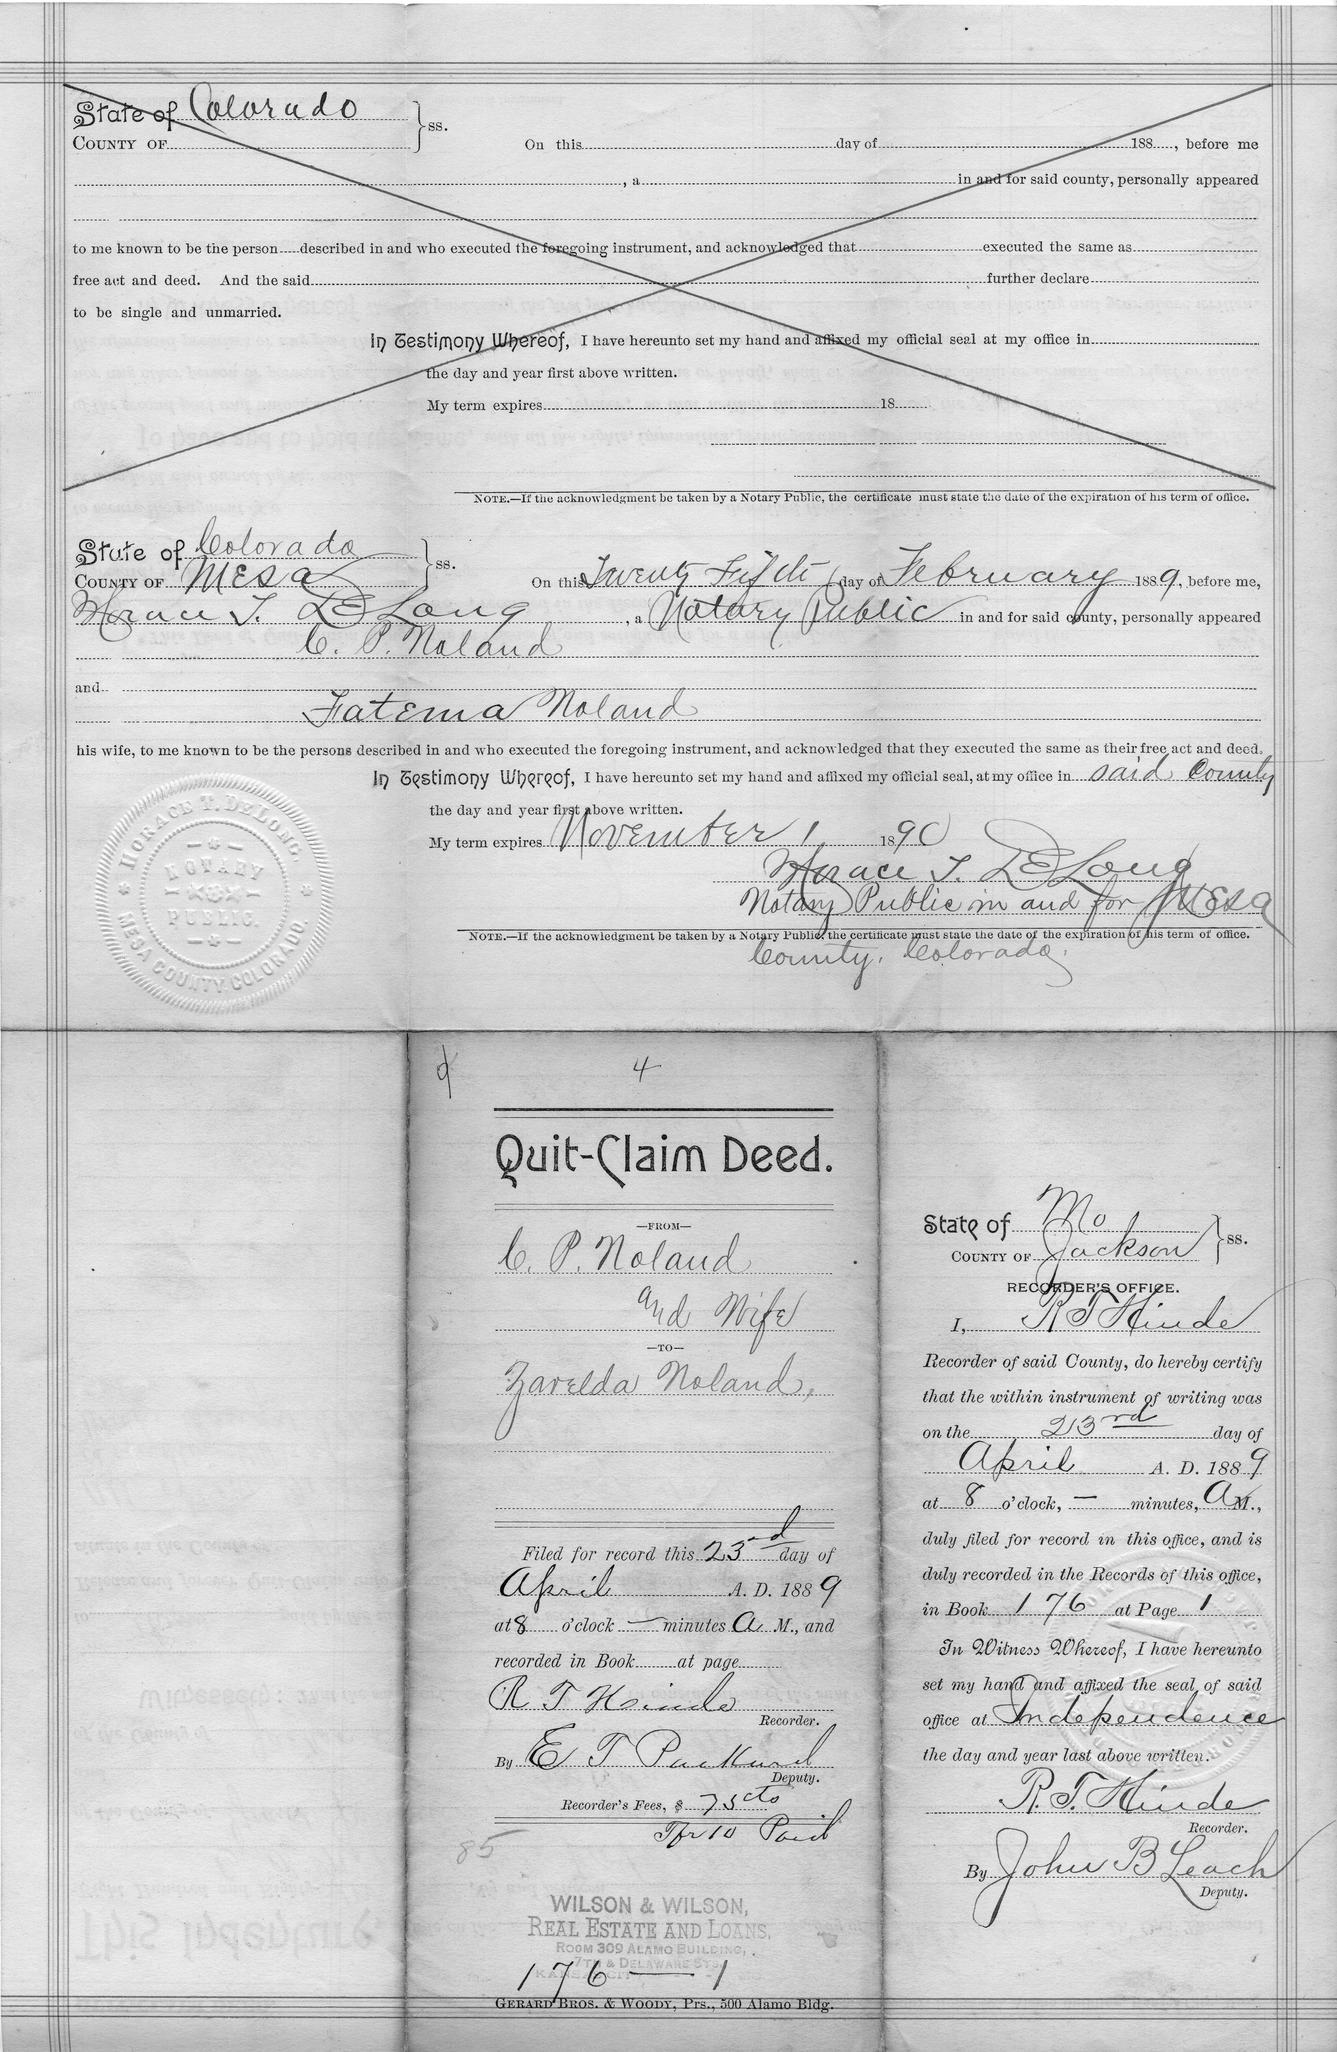 State of Colorado
COUNTY OF } ss.
On this day of 188 , before me
, a in and for said county, personally appeared
to me known to be the person described in and who executed the foregoing instrument, and acknowledged that executed the same as
free act and deed. And the said further declare
to be single and unmarried.
In Testimony Whereof, I have hereunto set my hand and affixed my official seal at my office in
the day and year first above written.
My term expires 18
NOTE.—If the acknowledgment be taken by a Notary Public, the certificate must state the date of the expiration of his term of office.
State of Colorado
COUNTY OF Mesa } ss.
On this Twenty Fifth day of February 1889, before me,
Horace T. DeLong , a Notary Public in and for said county, personally appeared
C. P. Noland
and
Fatema Noland
his wife, to me known to be the persons described in and who executed the foregoing instrument, and acknowledged that they executed the same as their free act and deed.
In Testimony Whereof, I have hereunto set my hand and affixed my official seal, at my office in said County
the day and year first above written.
My term expires November 1 1890
Horace T. DeLong
Notary Public in and for Mesa
NOTE.—If the acknowledgment be taken by a Notary Public, the certificate must state the date of the expiration of his term of office.
County, Colorado.
HORACE T. DELONG.
NOTARY
PUBLIC.
MESA COUNTY, COLORADO.
4
Quit-Claim Deed.
—FROM—
C. P. Noland
and Wife
—TO—
Zarelda Noland,
Filed for record this 23rd day of
April A. D. 1889
at 8 o'clock — minutes A M., and
recorded in Book at page
R T Hinde
Recorder.
By E T Packard
Deputy.
Recorder's Fees, $ 75cts
Tfr 10 Paid
85
WILSON & WILSON,
REAL ESTATE AND LOANS,
ROOM 309 ALAMO BUILDING,
7TH & DELAWARE STS.
KANSAS CITY
176 — 1
GERARD BROS. & WOODY, Prs., 500 Alamo Bldg.
State of Mo
COUNTY OF Jackson } ss.
RECORDER'S OFFICE.
I, R T Hinde
Recorder of said County, do hereby certify
that the within instrument of writing was
on the 23rd day of
April A. D. 1889
at 8 o'clock, — minutes, A M.,
duly filed for record in this office, and is
duly recorded in the Records of this office,
in Book 176 at Page 1
In Witness Whereof, I have hereunto
set my hand and affixed the seal of said
office at Independence
the day and year last above written.
R. T. Hinde
Recorder.
By John B Leach
Deputy.